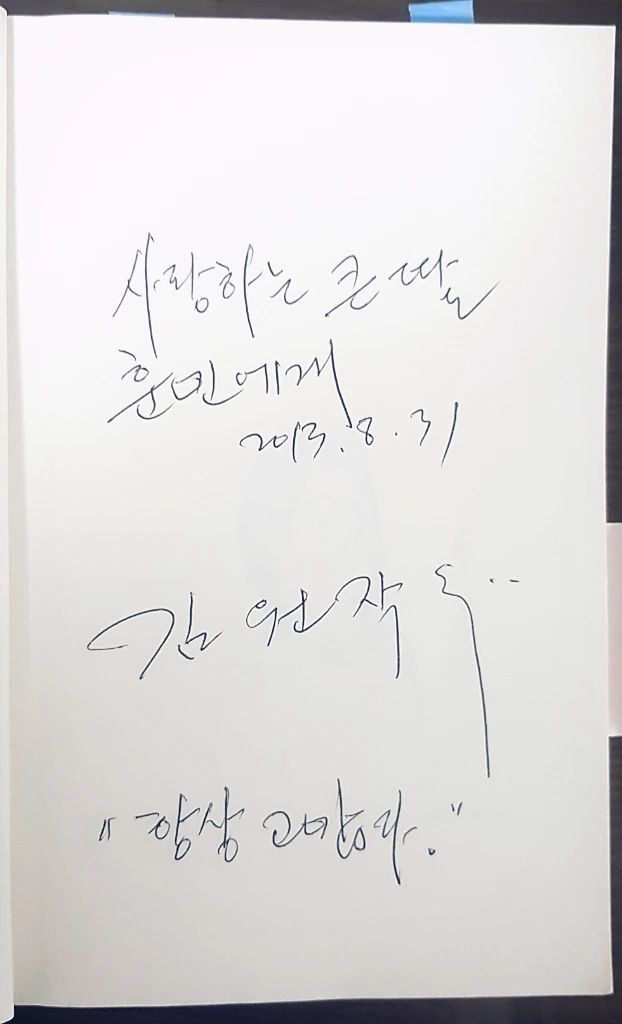 사랑하는 큰 딸
훈민에게
2013.8.31
김원작 드··
"항상 고맙다."